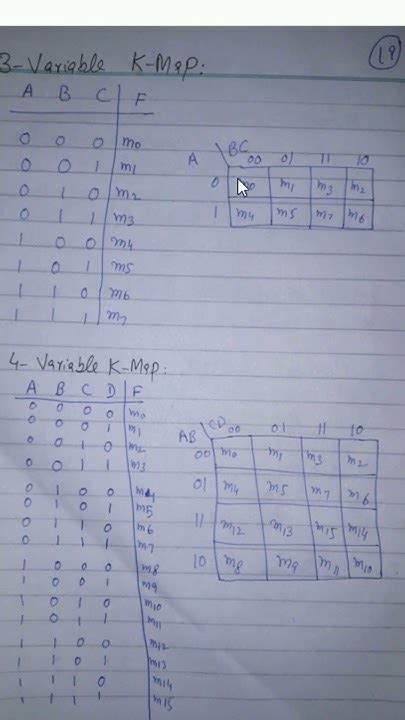 19
3-Variable K-Map:
A B C F
0 0 0 m0
0 0 1 m1
0 1 0 m2
0 1 1 m3
1 0 0 m4
1 0 1 m5
1 1 0 m6
1 1 1 m7
A BC 00 01 11 10
0 m0 m1 m3 m2
1 m4 m5 m7 m6
4- Variable K-Map:
A B C D F
0 0 0 0 m0
0 0 0 1 m1
0 0 1 0 m2
0 0 1 1 m3
0 1 0 0 m4
0 1 0 1 m5
0 1 1 0 m6
0 1 1 1 m7
1 0 0 0 m8
1 0 0 1 m9
1 0 1 0 m10
1 0 1 1 m11
1 1 0 0 m12
1 1 0 1 m13
1 1 1 0 m14
1 1 1 1 m15
AB CD 00 01 11 10
00 m0 m1 m3 m2
01 m4 m5 m7 m6
11 m12 m13 m15 m14
10 m8 m9 m11 m10